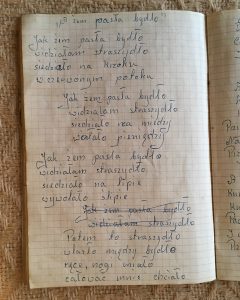 jak żem pasła bydło
Jak żem pasła bydło
widziałam straszydło
siedziało na krzoku
w czerwonym potoku
Jak żem pasła bydło
widziałam straszydło
siedziało na miedzy
wołało pieniędzy
Jak żem pasła bydło
widziałam straszydło
siedziało na lipie
wywołało ślipie
Jak żem pasła bydło
widziałam straszydło
Potem to straszydło
wlazło między bydło
ręce, nogi miało
całować mnie chciało